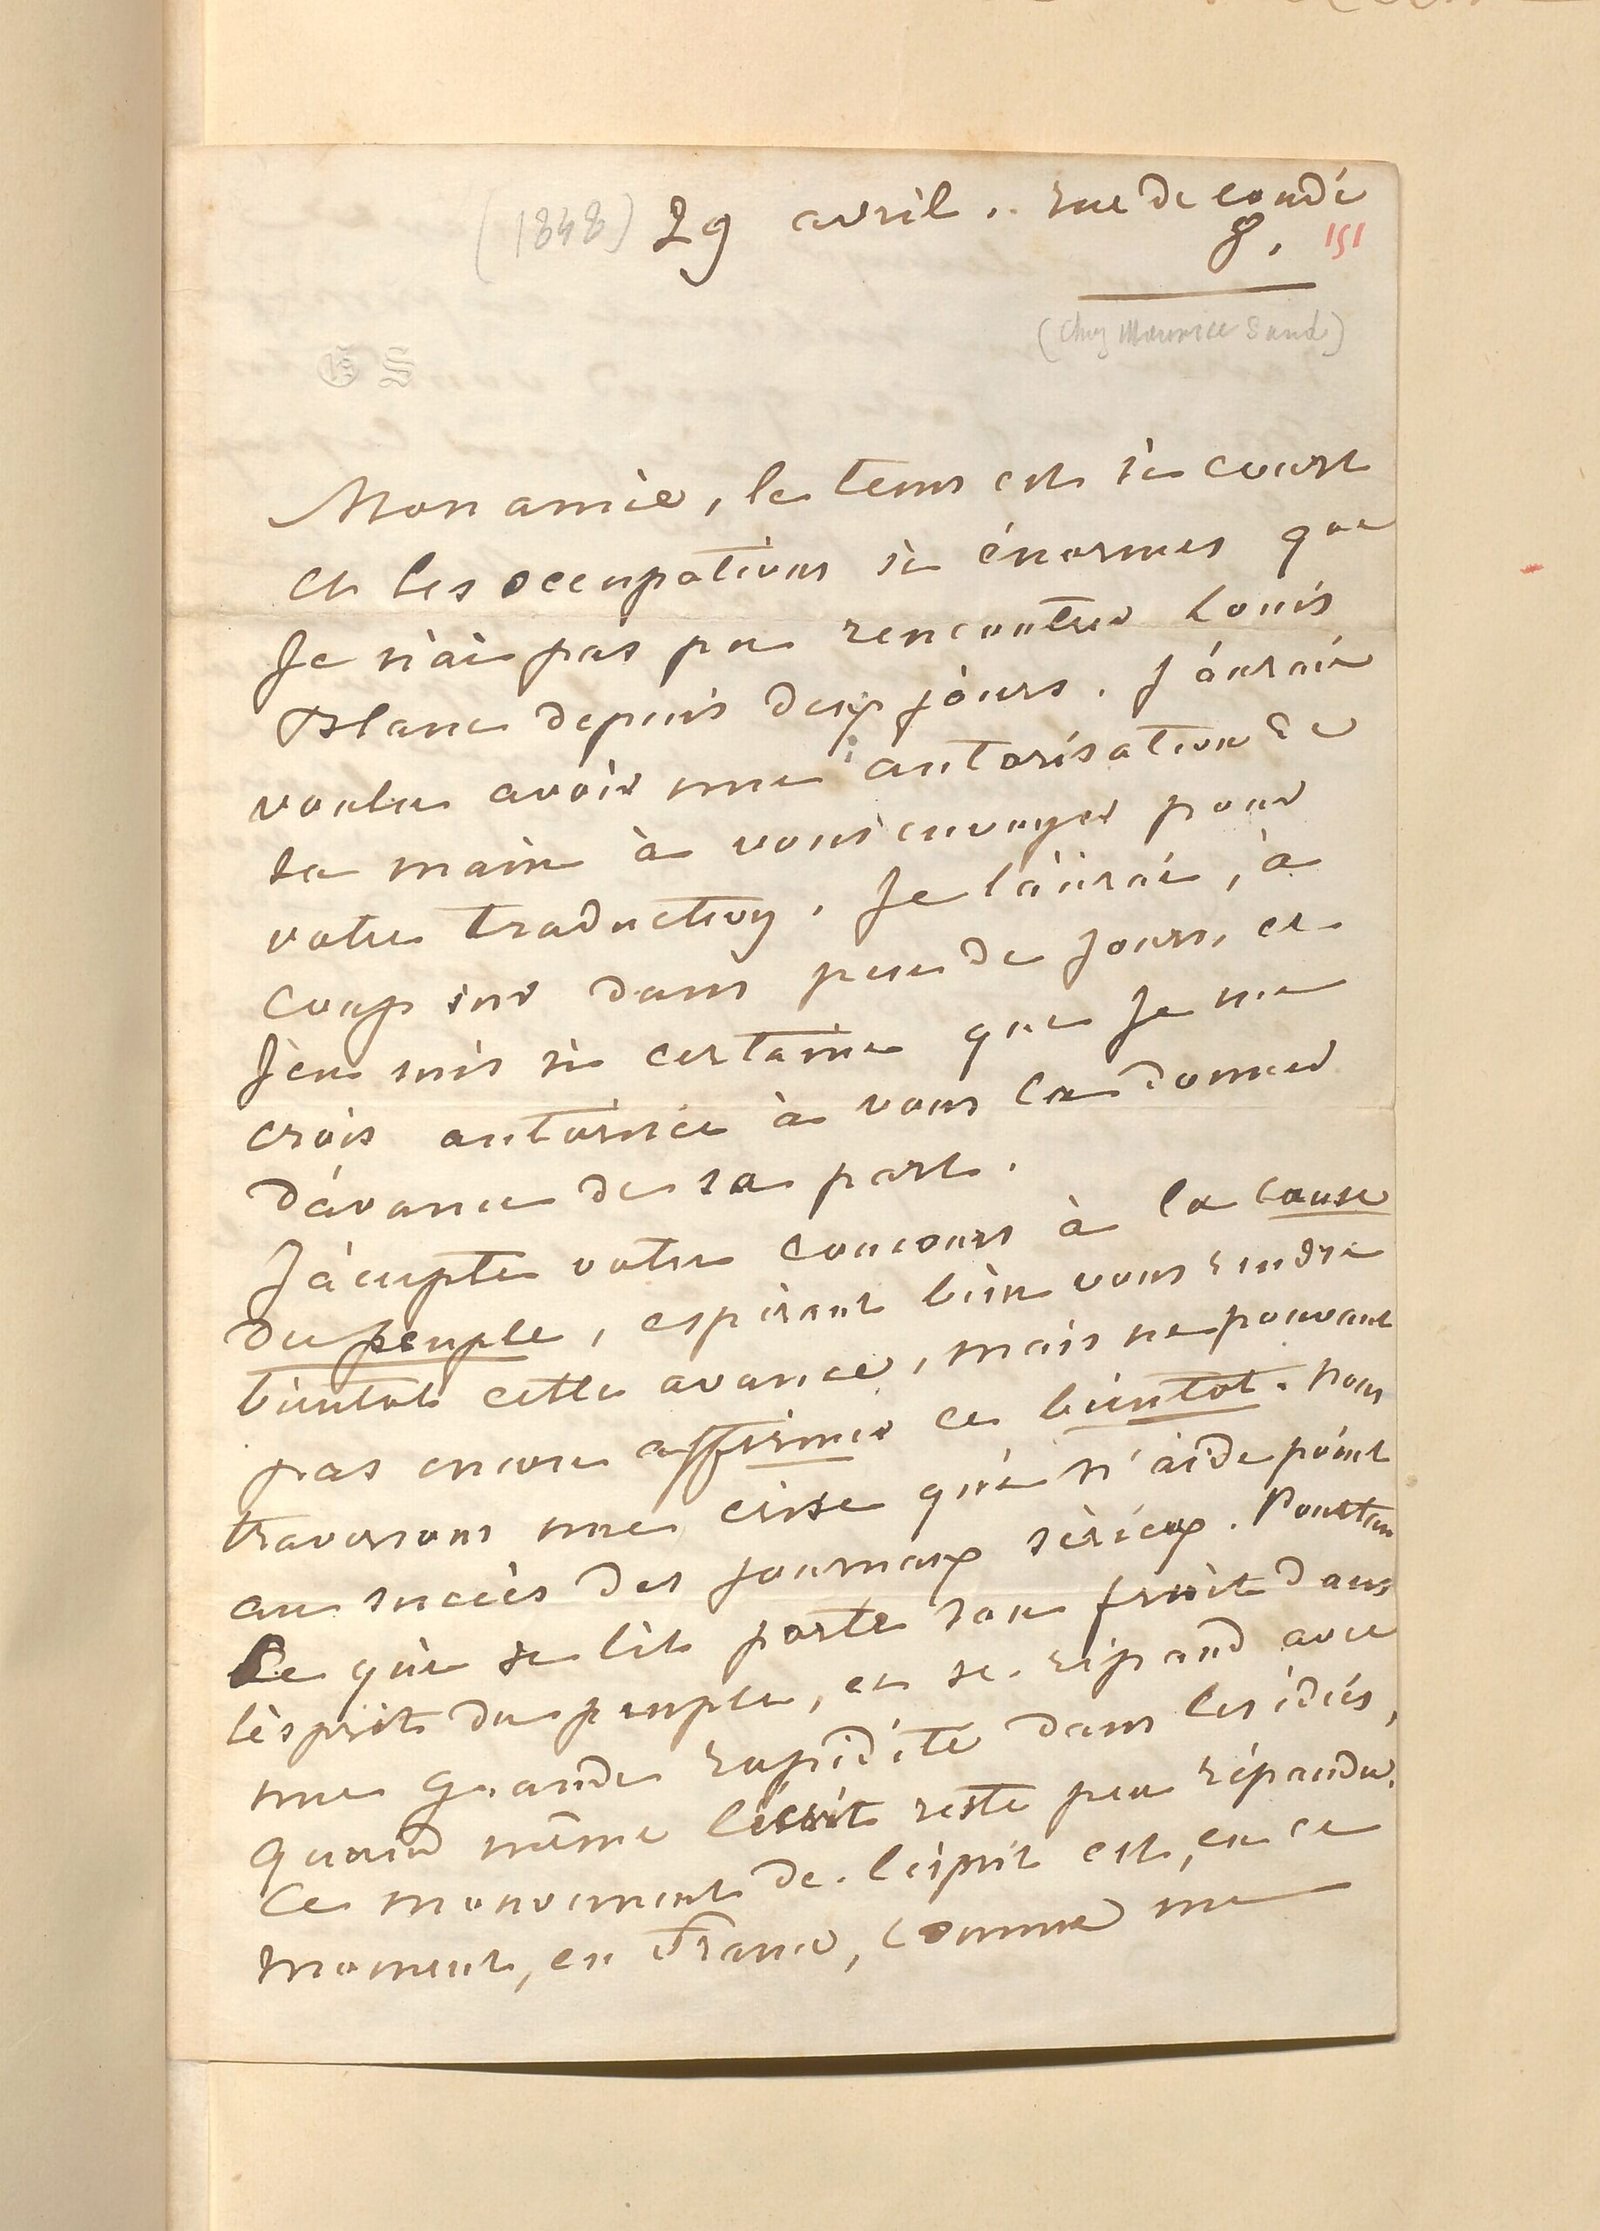 (1848) 29 avril. rue de Condé
8. 151
(chez Maurice Sand)
GS
Mon amie, le tems est si court
et les occupations si énormes que
je n'ai pas pu rencontrer Louis
Blanc depuis deux jours. J'aurais
voulu avoir une autorisation de
sa main à vous envoyer pour
votre traduction. Je l'aurai, à
coup sur dans peu de jours, et
j'en suis si certaine que je me
crois autorisée à vous la donner
d'avance de sa part.
J'accepte votre concours à la cause
du peuple, espérant bien vous rendre
bientot cette avance, mais ne pouvant
pas encore affirmer ce bientot. Nous
traversons une crise qui n'aide point
au succès des journaux sérieux. Pourtan
ce qui se lit porte son fruit dans
l'esprit du peuple, et se répand avec
une grande rapidité dans les idées,
quand même l'écrit reste peu répandu.
Ce mouvement de l'esprit est, en ce
moment, en France, comme une